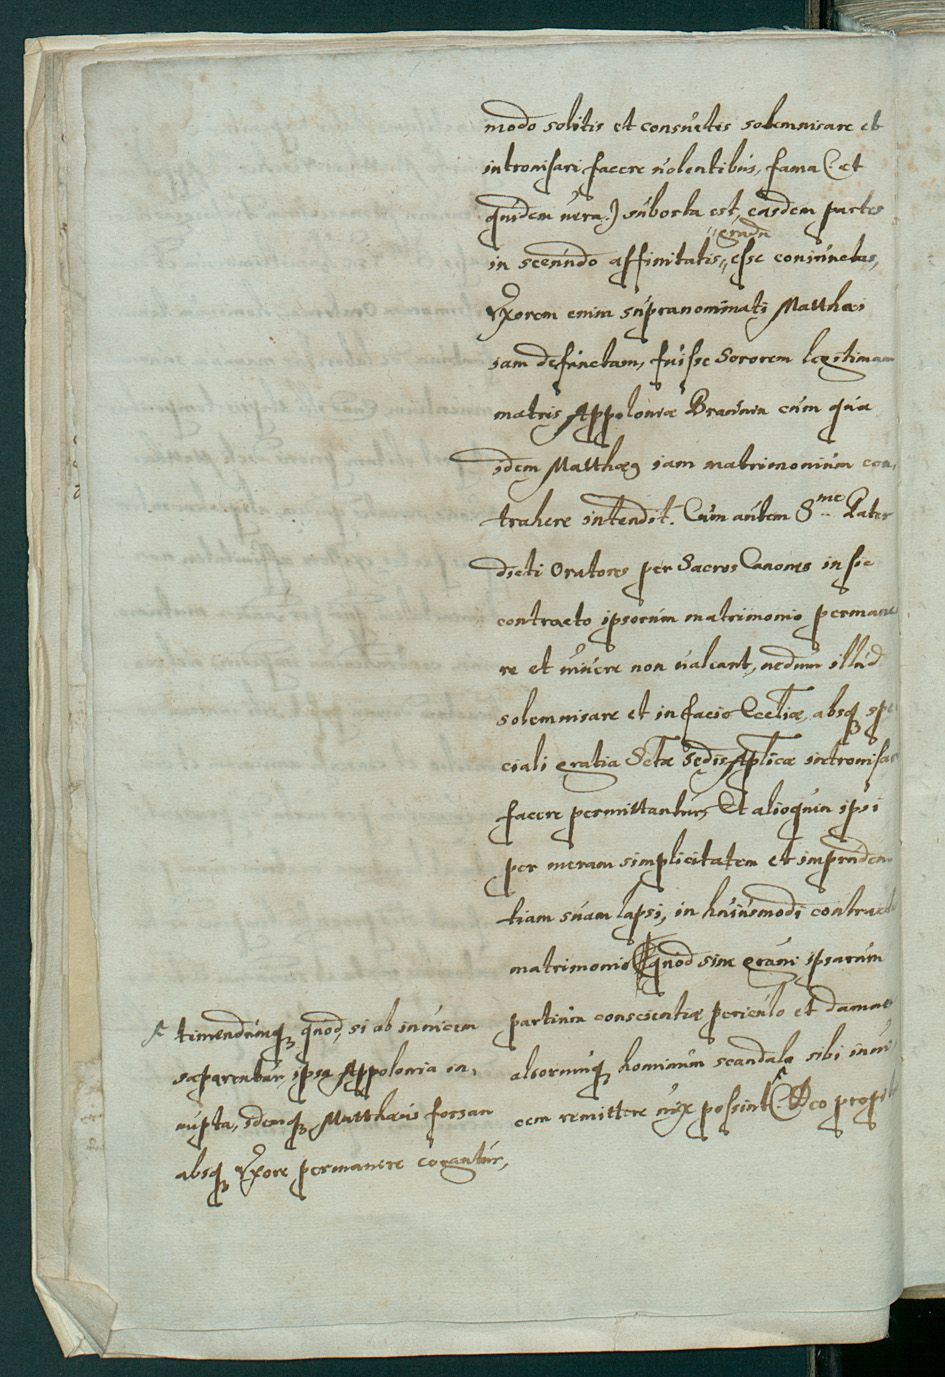 modo solitis et consuetis solemnisare et
intronisari facere volentibus, fama (: et
quidem vera :) suborta est, easdem partes
gradu
in secundo affinitatis esse coniunctas,
Vxorem enim supranominati Matthæi
iam defunctam, fuisse Sororem legitimam
matris Appoloniæ cum qua
idem Matthæus iam matrimonium con,
trahere intendit. Cum autem Sme Pater
dicti Oratores per Sacros Canones in sic
contracto ipsorum matrimonio permane
re et vivere non valeant, nedum illud
solemnisare et in facie Ecctiæ, absq spe
ciali gratia Sctæ sedis Aplicæ intronisar
facere permittantur, Et alioquin ipsi
per meram simplicitatem et impruden
tiam suam lapsi, in huiusmodi contracto
matrimonio quod sine graui ipsarum
partium conscientiæ periculo et damno
aliorumq hominum scandala sibi inui
cem remittere vix possint (: Deo propit
timendumq quod, si ab inuicem
separentur, ipsa Appolonia in,
nupta, idemq Matthæus forsan
absq Vxore permanere cogantur,